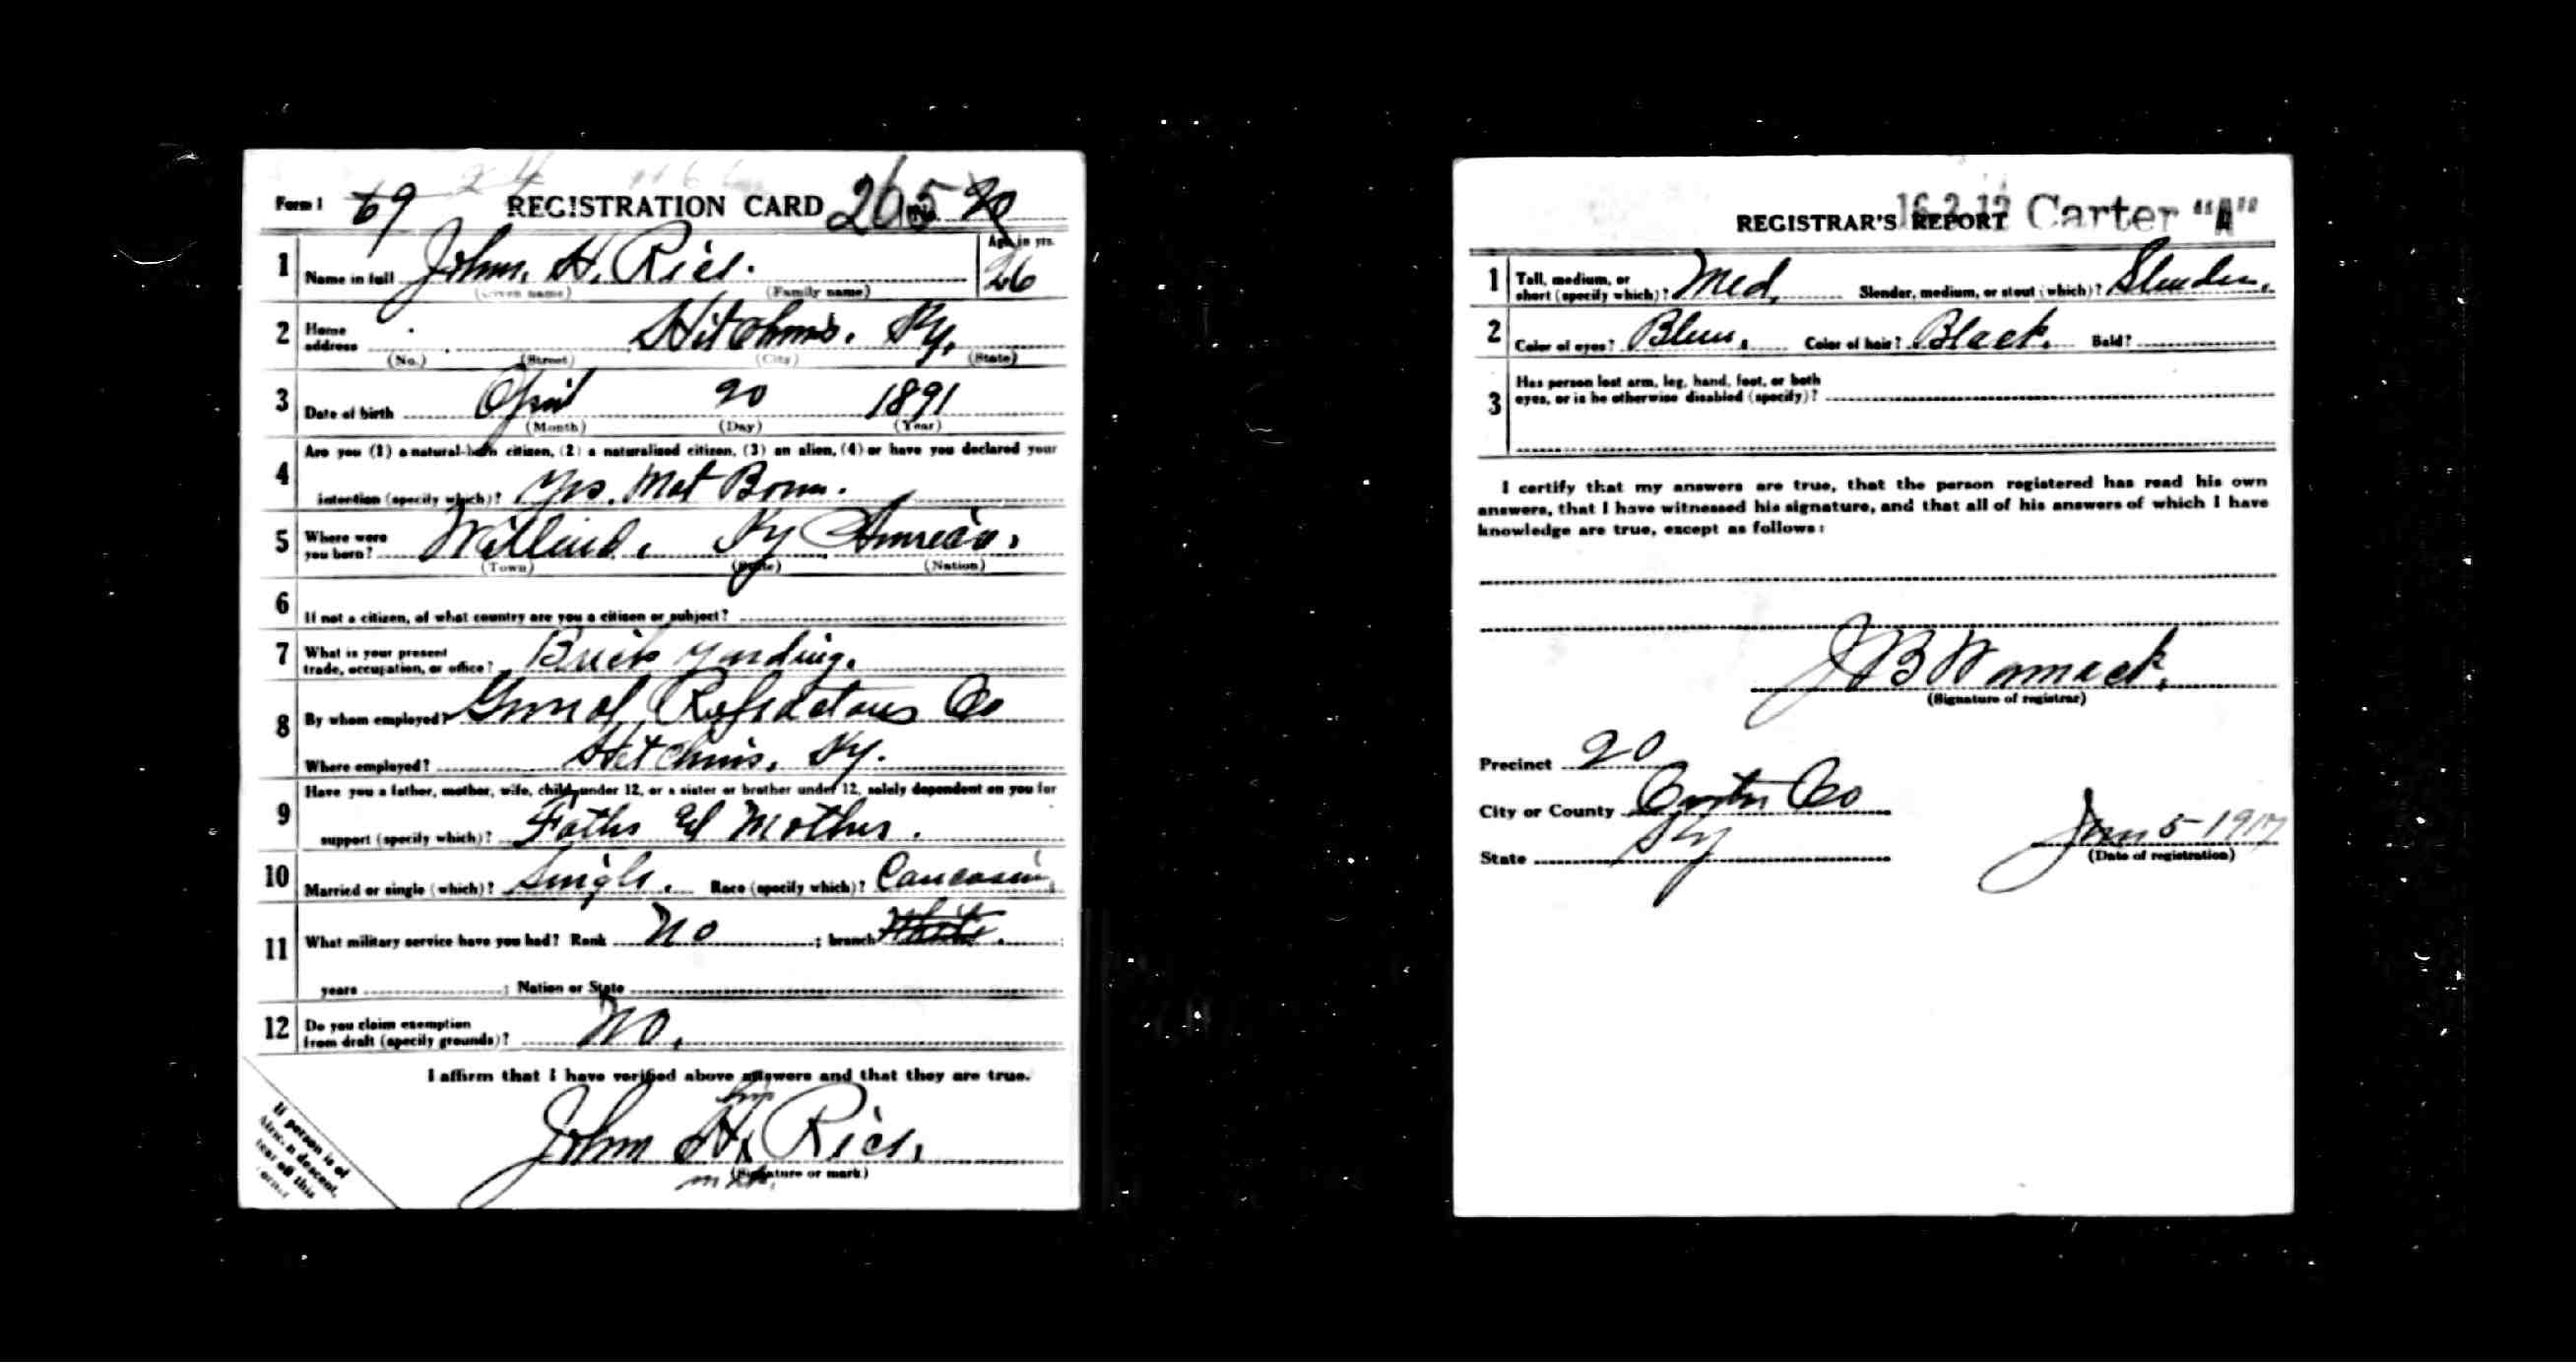 Form 1 69 REGISTRATION CARD 265 No. 20
1 Name in full John. H. Rice. Age in yrs. 26
(Given name) (Family name)
2 Home address Hitchins. Ky.
(No.) (Street) (City) (State)
3 Date of birth April 20 1891
(Month) (Day) (Year)
4 Are you (1) a natural-born citizen, (2) a naturalized citizen, (3) an alien, (4) or have you declared your
intention (specify which)? Yes. Nat Born.
5 Where were you born? Willard. Ky America.
(Town) (State) (Nation)
6 If not a citizen, of what country are you a citizen or subject?
7 What is your present
trade, occupation, or office? Brick Yarding.
8 By whom employed? General Refractories Co
Where employed? Hitchins, Ky.
9 Have you a father, mother, wife, child under 12, or a sister or brother under 12, solely dependent on you for
support (specify which)? Father & Mother.
10 Married or single (which)? Single. Race (specify which)? Caucasin
11 What military service have you had? Rank No ; branch White. ;
years ; Nation or State
12 Do you claim exemption
from draft (specify grounds)? No.
I affirm that I have verified above answers and that they are true.
his
John H. Rice.
(Signature or mark)
mark.
If person is of
African descent,
tear off this
corner
16-2-12 Carter "A"
REGISTRAR'S REPORT
1 Tall, medium, or
short (specify which)? Med. Slender, medium, or stout (which)? Slender.
2 Color of eyes? Blue. Color of hair? Black. Bald?
3 Has person lost arm, leg, hand, foot, or both
eyes, or is he otherwise disabled (specify)?
I certify that my answers are true, that the person registered has read his own
answers, that I have witnessed his signature, and that all of his answers of which I have
knowledge are true, except as follows:
J B Womack.
(Signature of registrar)
Precinct 20
City or County Carter Co
State Ky
Jun 5-1917
(Date of registration)